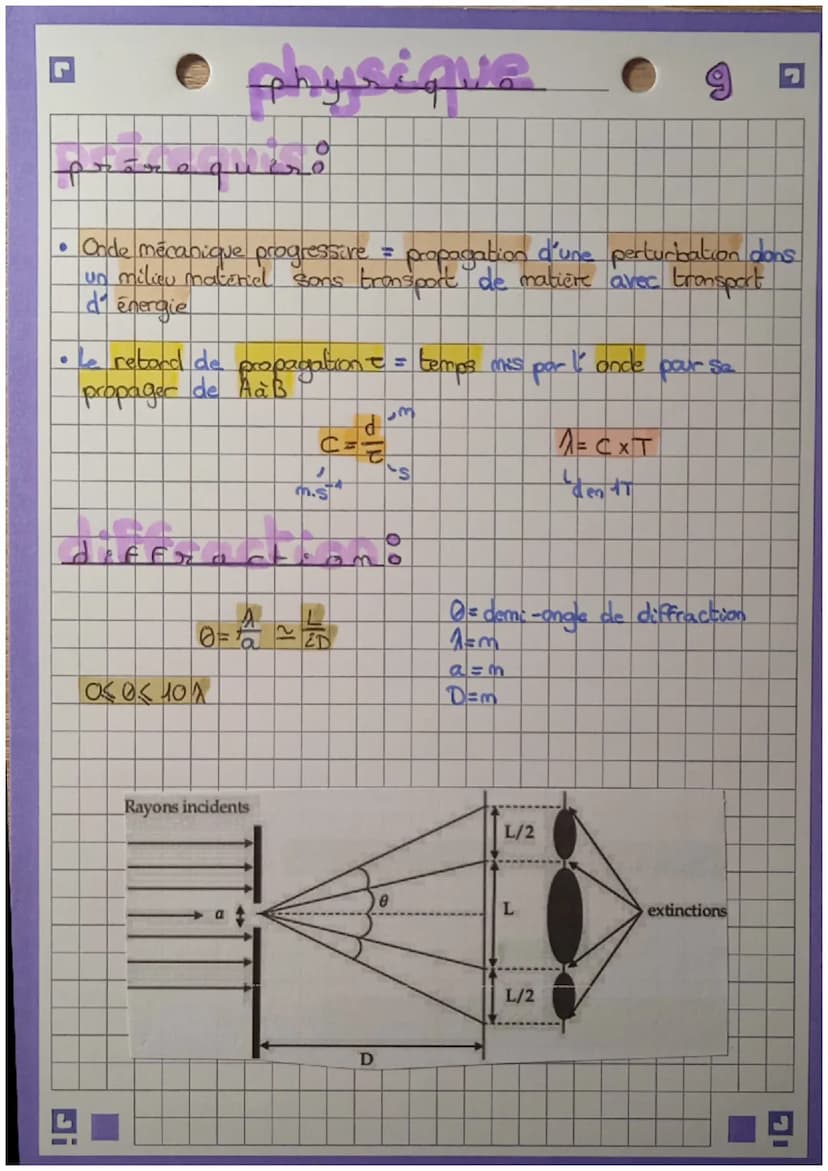 physique
9
prérequis:
• Onde mécanique progressive = propagation d'une perturbation dans
un milieu matériel sans transport de matière avec transport
d'énergie
• Le retard de propagation τ = temps mis par l'onde pour se
propager de A à B
C = d/τ
m
s
m.s⁻¹
λ = C x T
d en 1T
diffraction:
θ = λ/a ≃ L/2D
θ = demi-angle de diffraction
λ = m
a = m
D = m
0 ≤ θ ≤ 10 λ
Rayons incidents
L/2
a
θ
L
extinctions
L/2
D